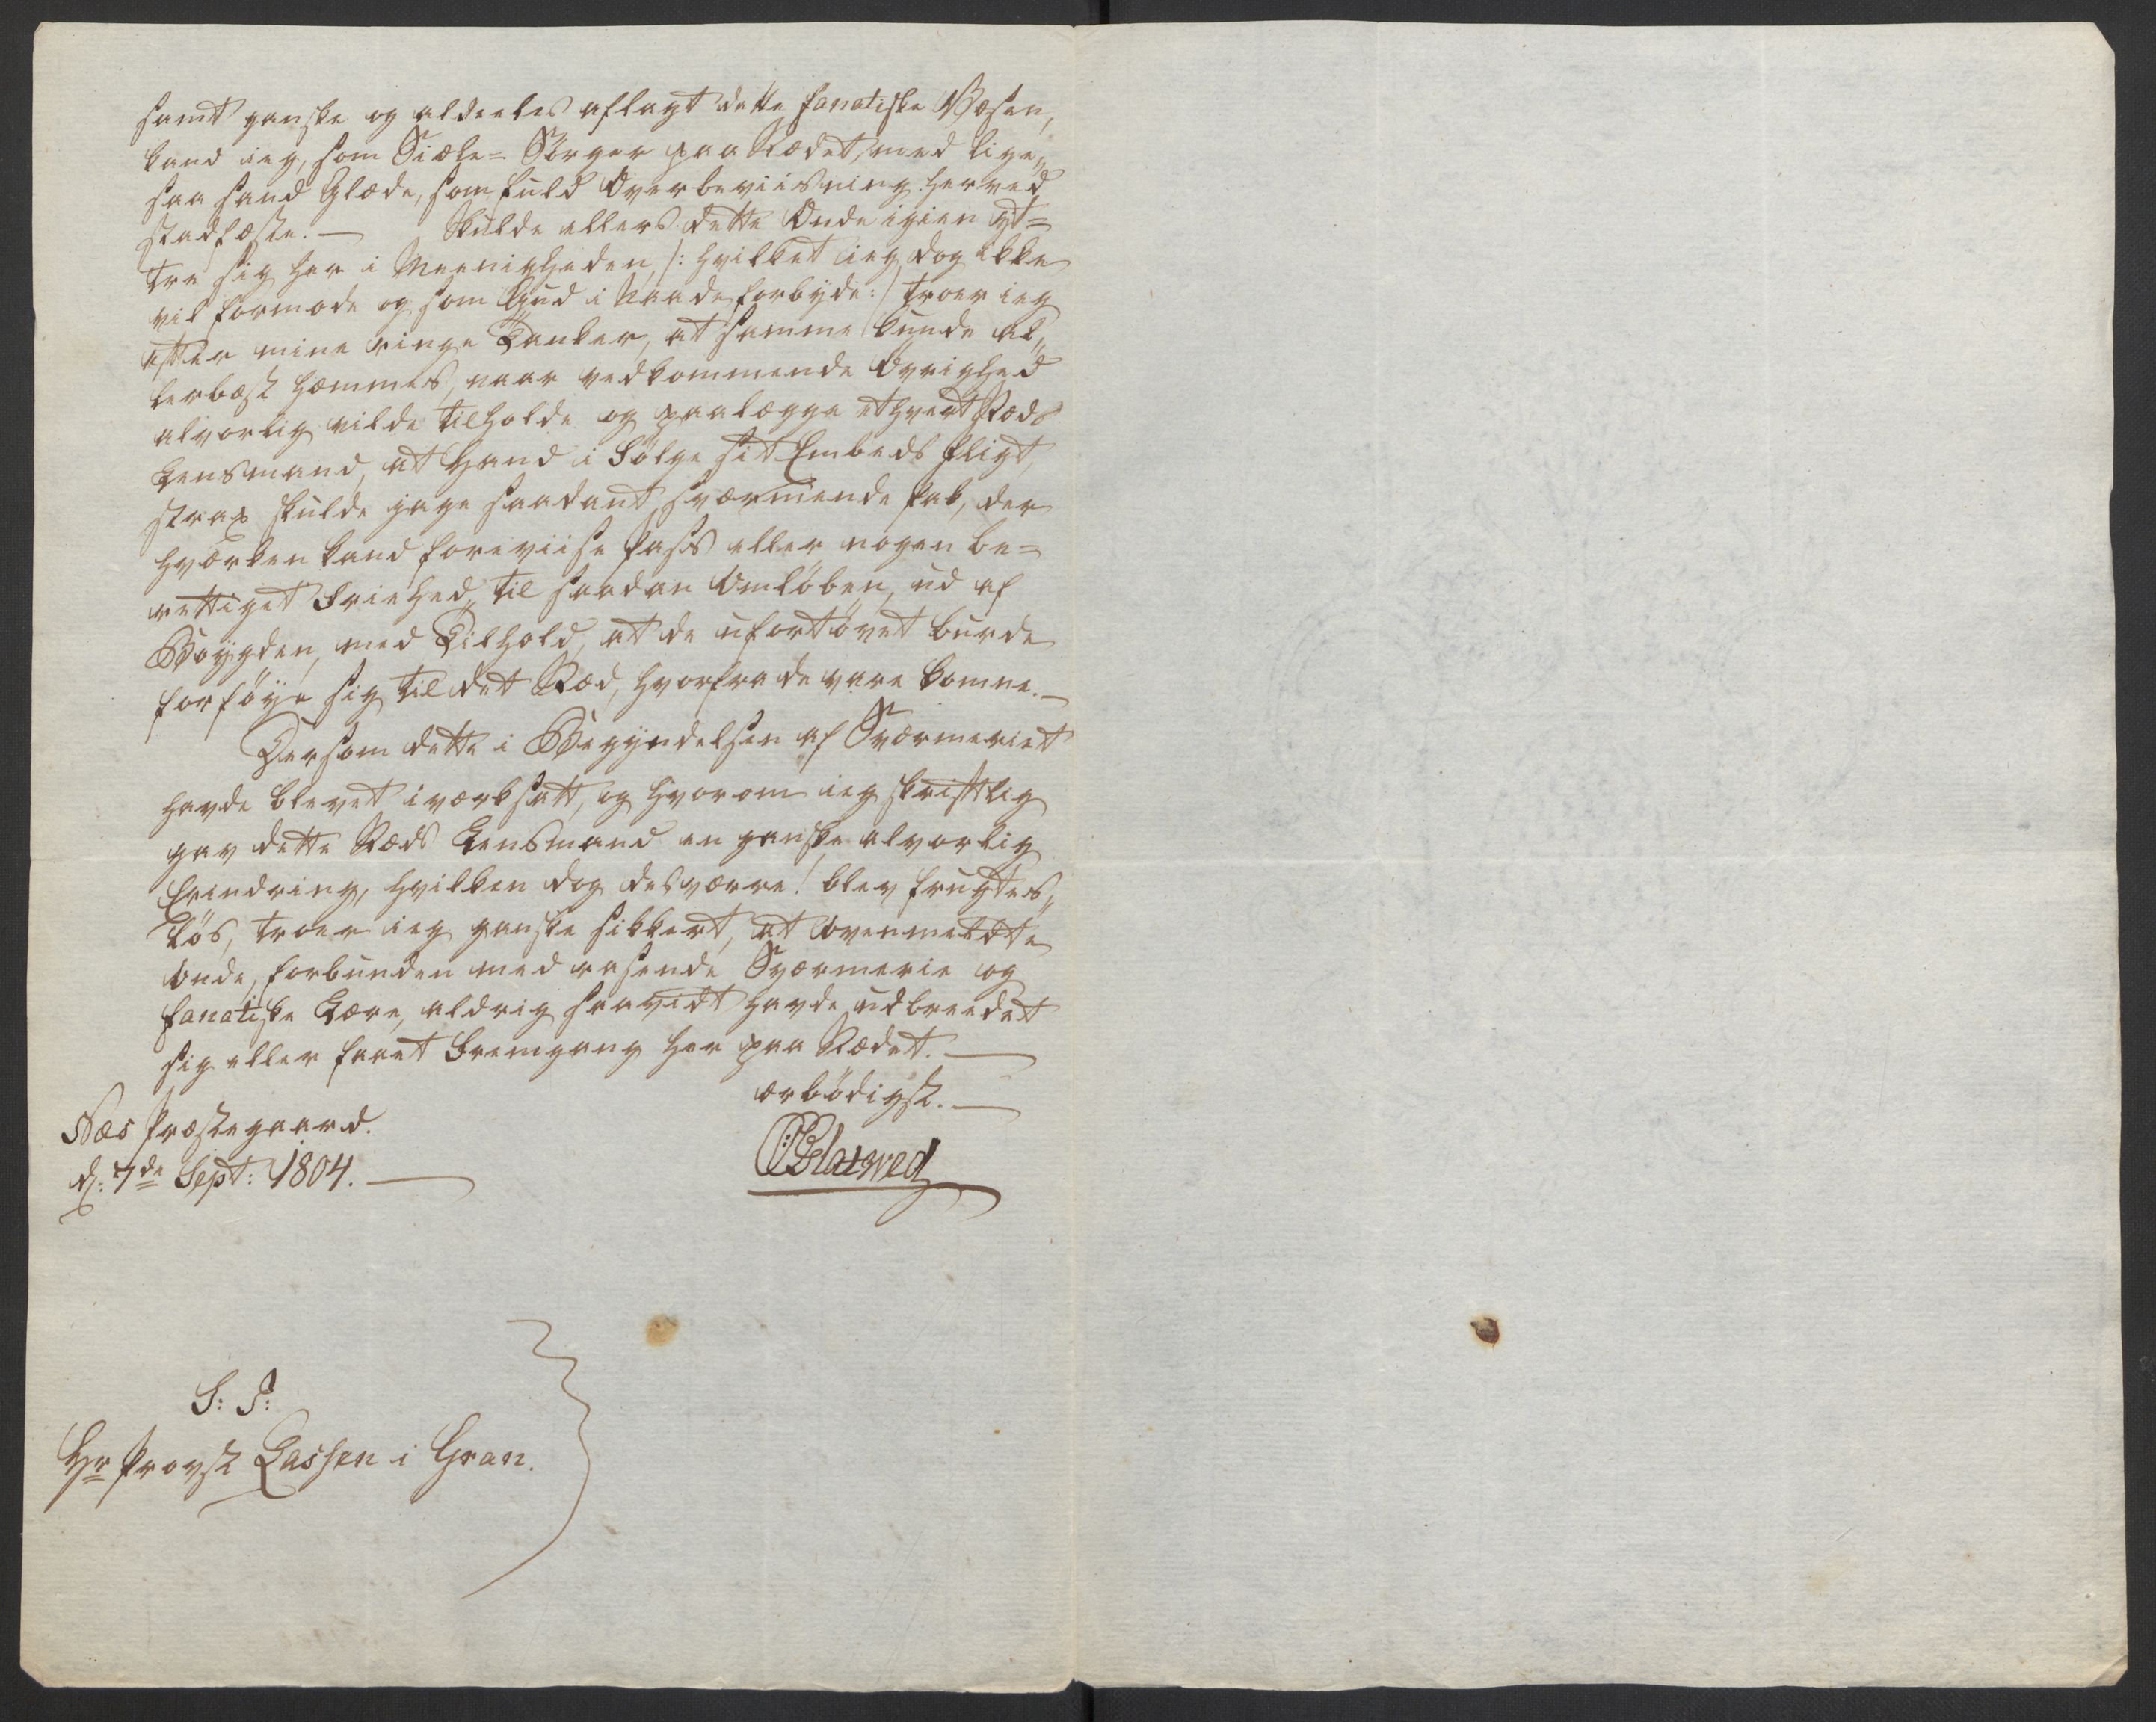 samt ganske og aldeeles aflagt dette fanatiske Væsen,
kand ieg, som Siæle-Sörger paa Stædet, med lige„
saa sand Glæde, som fuld Overbeviisning herved
stadfæste. — Skulde ellers dette Onde igien yt=
tre sig her i Meenigheden, /: hvilket ieg dog ikke
vil formode og som Gud i Naade forbyde: / troer ieg
efter mine ringe Tanker, at samme kunde al„
lerbæst hæmmes, naar vedkommende Øvrighed
alvorlig vilde tilholde og paalægge ethvert Stæds
Lensmand, at Hand i Følge sit Embeds Pligt,
strax skulde jage saadant sværmende Pak, der
hværken kand foreviise Pass eller nogen be=
rettiget Friehed til saadan Omlöben, ud af
Böygden, med Tilhold, at de ufortövet burde
forföye sig til det Stæd, hvorfra de vare komne. —
Dersom dette i Begyndelsen af Sværmeriet
havde blevet iværksatt, og hvorom ieg skriftlig
gav dette Stæds Lensmand en ganske alvorlig
Erindring, hvilken dog desværre! blev frugtes„
lös, troer ieg ganske sikkert, at ovenmeldte
Onde, forbunden med rasende Sværmerie og
fanatiske Lære, aldrig saavidt havde udbreedet
sig eller faaet Fremgang her paa Stædet. —
ærbödigst. —
Næs Præstegaard.
d: 7de Sept: 1804. —
Blatwed
S: T:
Hr Provst Lassen i Gran.